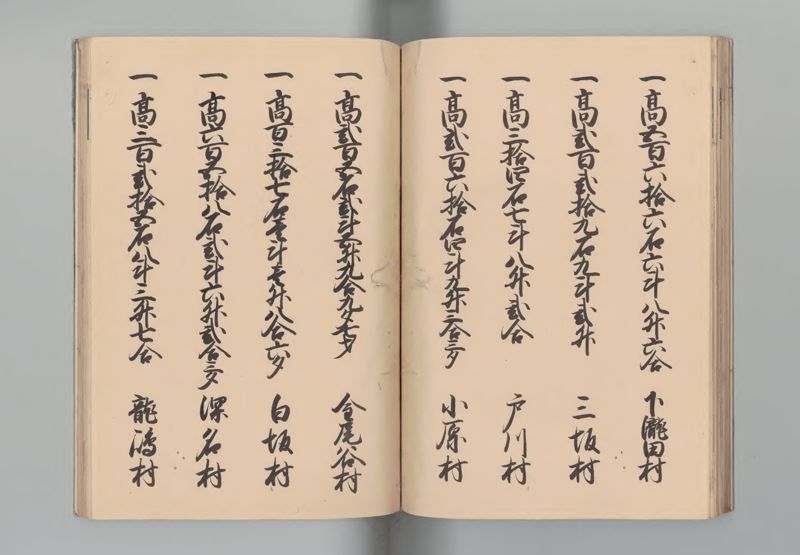 一高五百六拾六石六斗八升六合 下瀧田村
一高弐百弐拾九石九斗弐升 三坂村
一高三拾四石七斗八升弐合 戸川村
一高弐百六拾石四斗九升三合三夕 小原村
一高弐百五石弐斗五升九合九夕七才 合尾谷村
一高百三拾七石壱斗壱升八合六夕 白坂村
一高六百五拾八石弐斗六升弐合三夕 深名村
一高三百弐拾五石八斗三升七合 龍嶋村